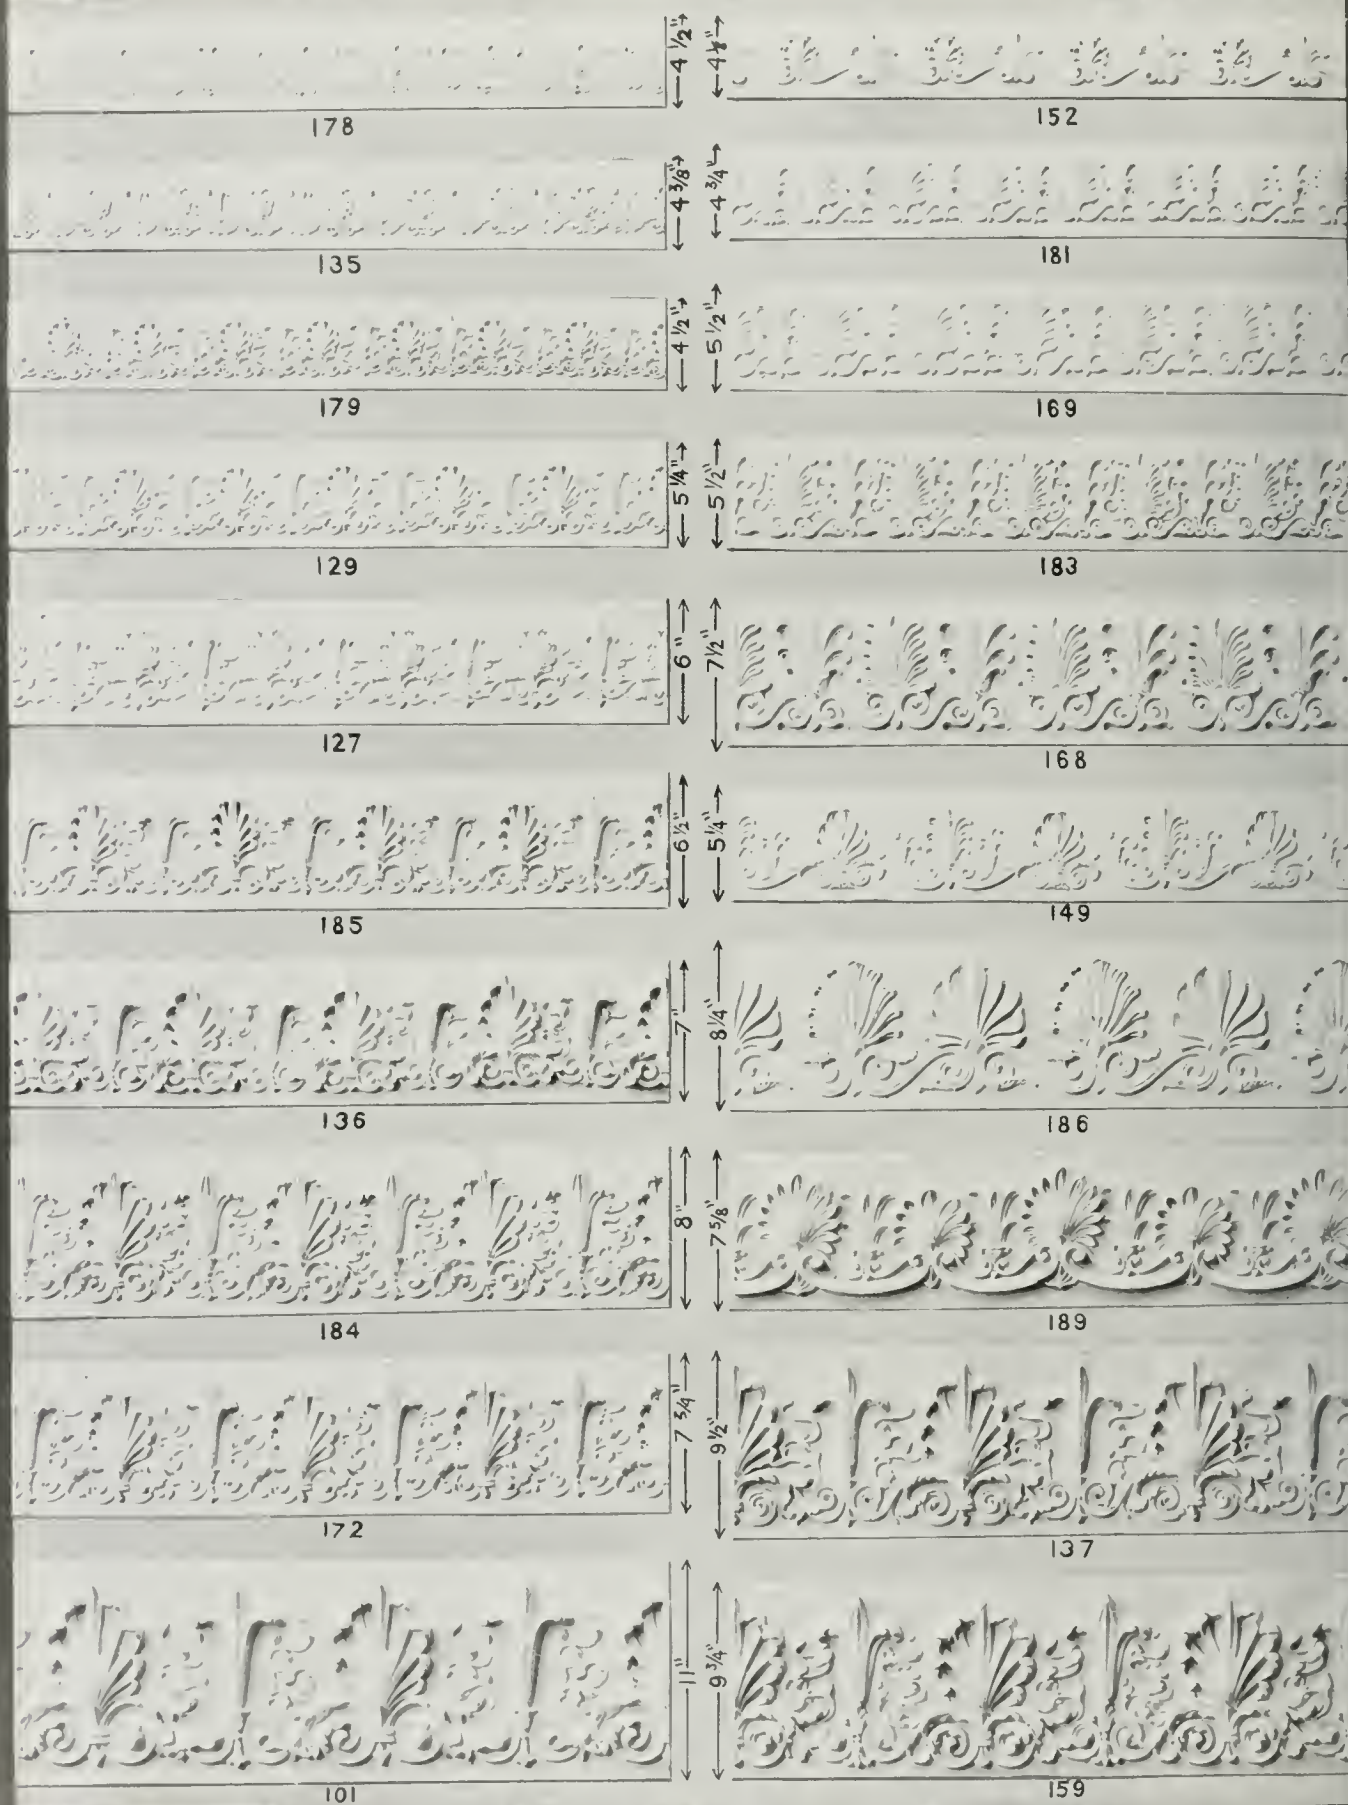 4 1/2"
178
4 3/8"
135
4 1/2"
179
5 1/4"
129
6"
127
6 1/2"
185
7"
136
8"
184
7 3/4"
172
11"
101
152
4 3/4"
181
5 1/2"
169
5 1/2"
183
7 1/2"
168
5 1/4"
149
8 1/4"
186
7 5/8"
189
9 1/2"
137
9 3/4"
159